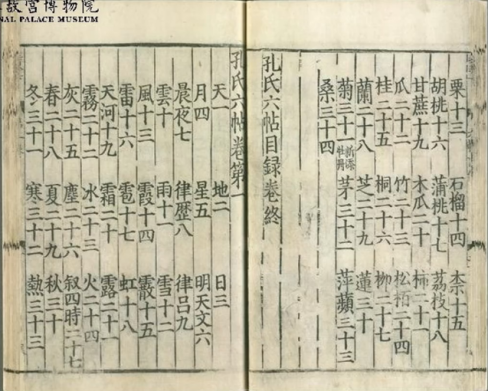 故宮博物院
NAL PALACE MUSEUM
栗十三 石榴十四 柰十五
胡桃十六 蒲桃十七 荔枝十八
甘蔗十九 木瓜二十 柿二十一
瓜二十二 竹二十三 松栢二十四
桂二十五 桐二十六 柳二十七
蘭二十八 芝二十九 蓮三十
菊三十一 茅三十二 萍蘋三十三
桑三十四
孔氏六帖目録卷終
孔氏六帖卷第一
天一 地二 日三
月四 星五 明天文六
晨夜七 律歷八 律吕九
雲十 雨十一 雪十二
風十三 霞十四 霰十五
雷十六 雹十七 虹十八
天河十九 霜二十 露二十一
霧二十二 水二十三 火二十四
灰二十五 塵二十六 叙四時二十七
春二十八 夏二十九 秋三十
冬三十一 寒三十二 熱三十三